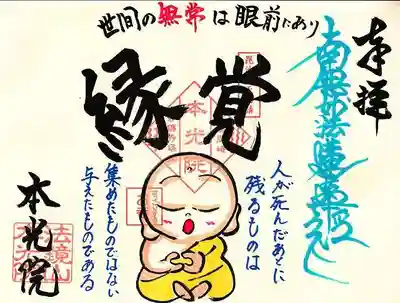 世間の無常は眼前にあり
奉拝
南無妙法蓮華経
縁覚
本光院
人が死んだあとに
残るものは
集めたものではない
与えたものである
本光院